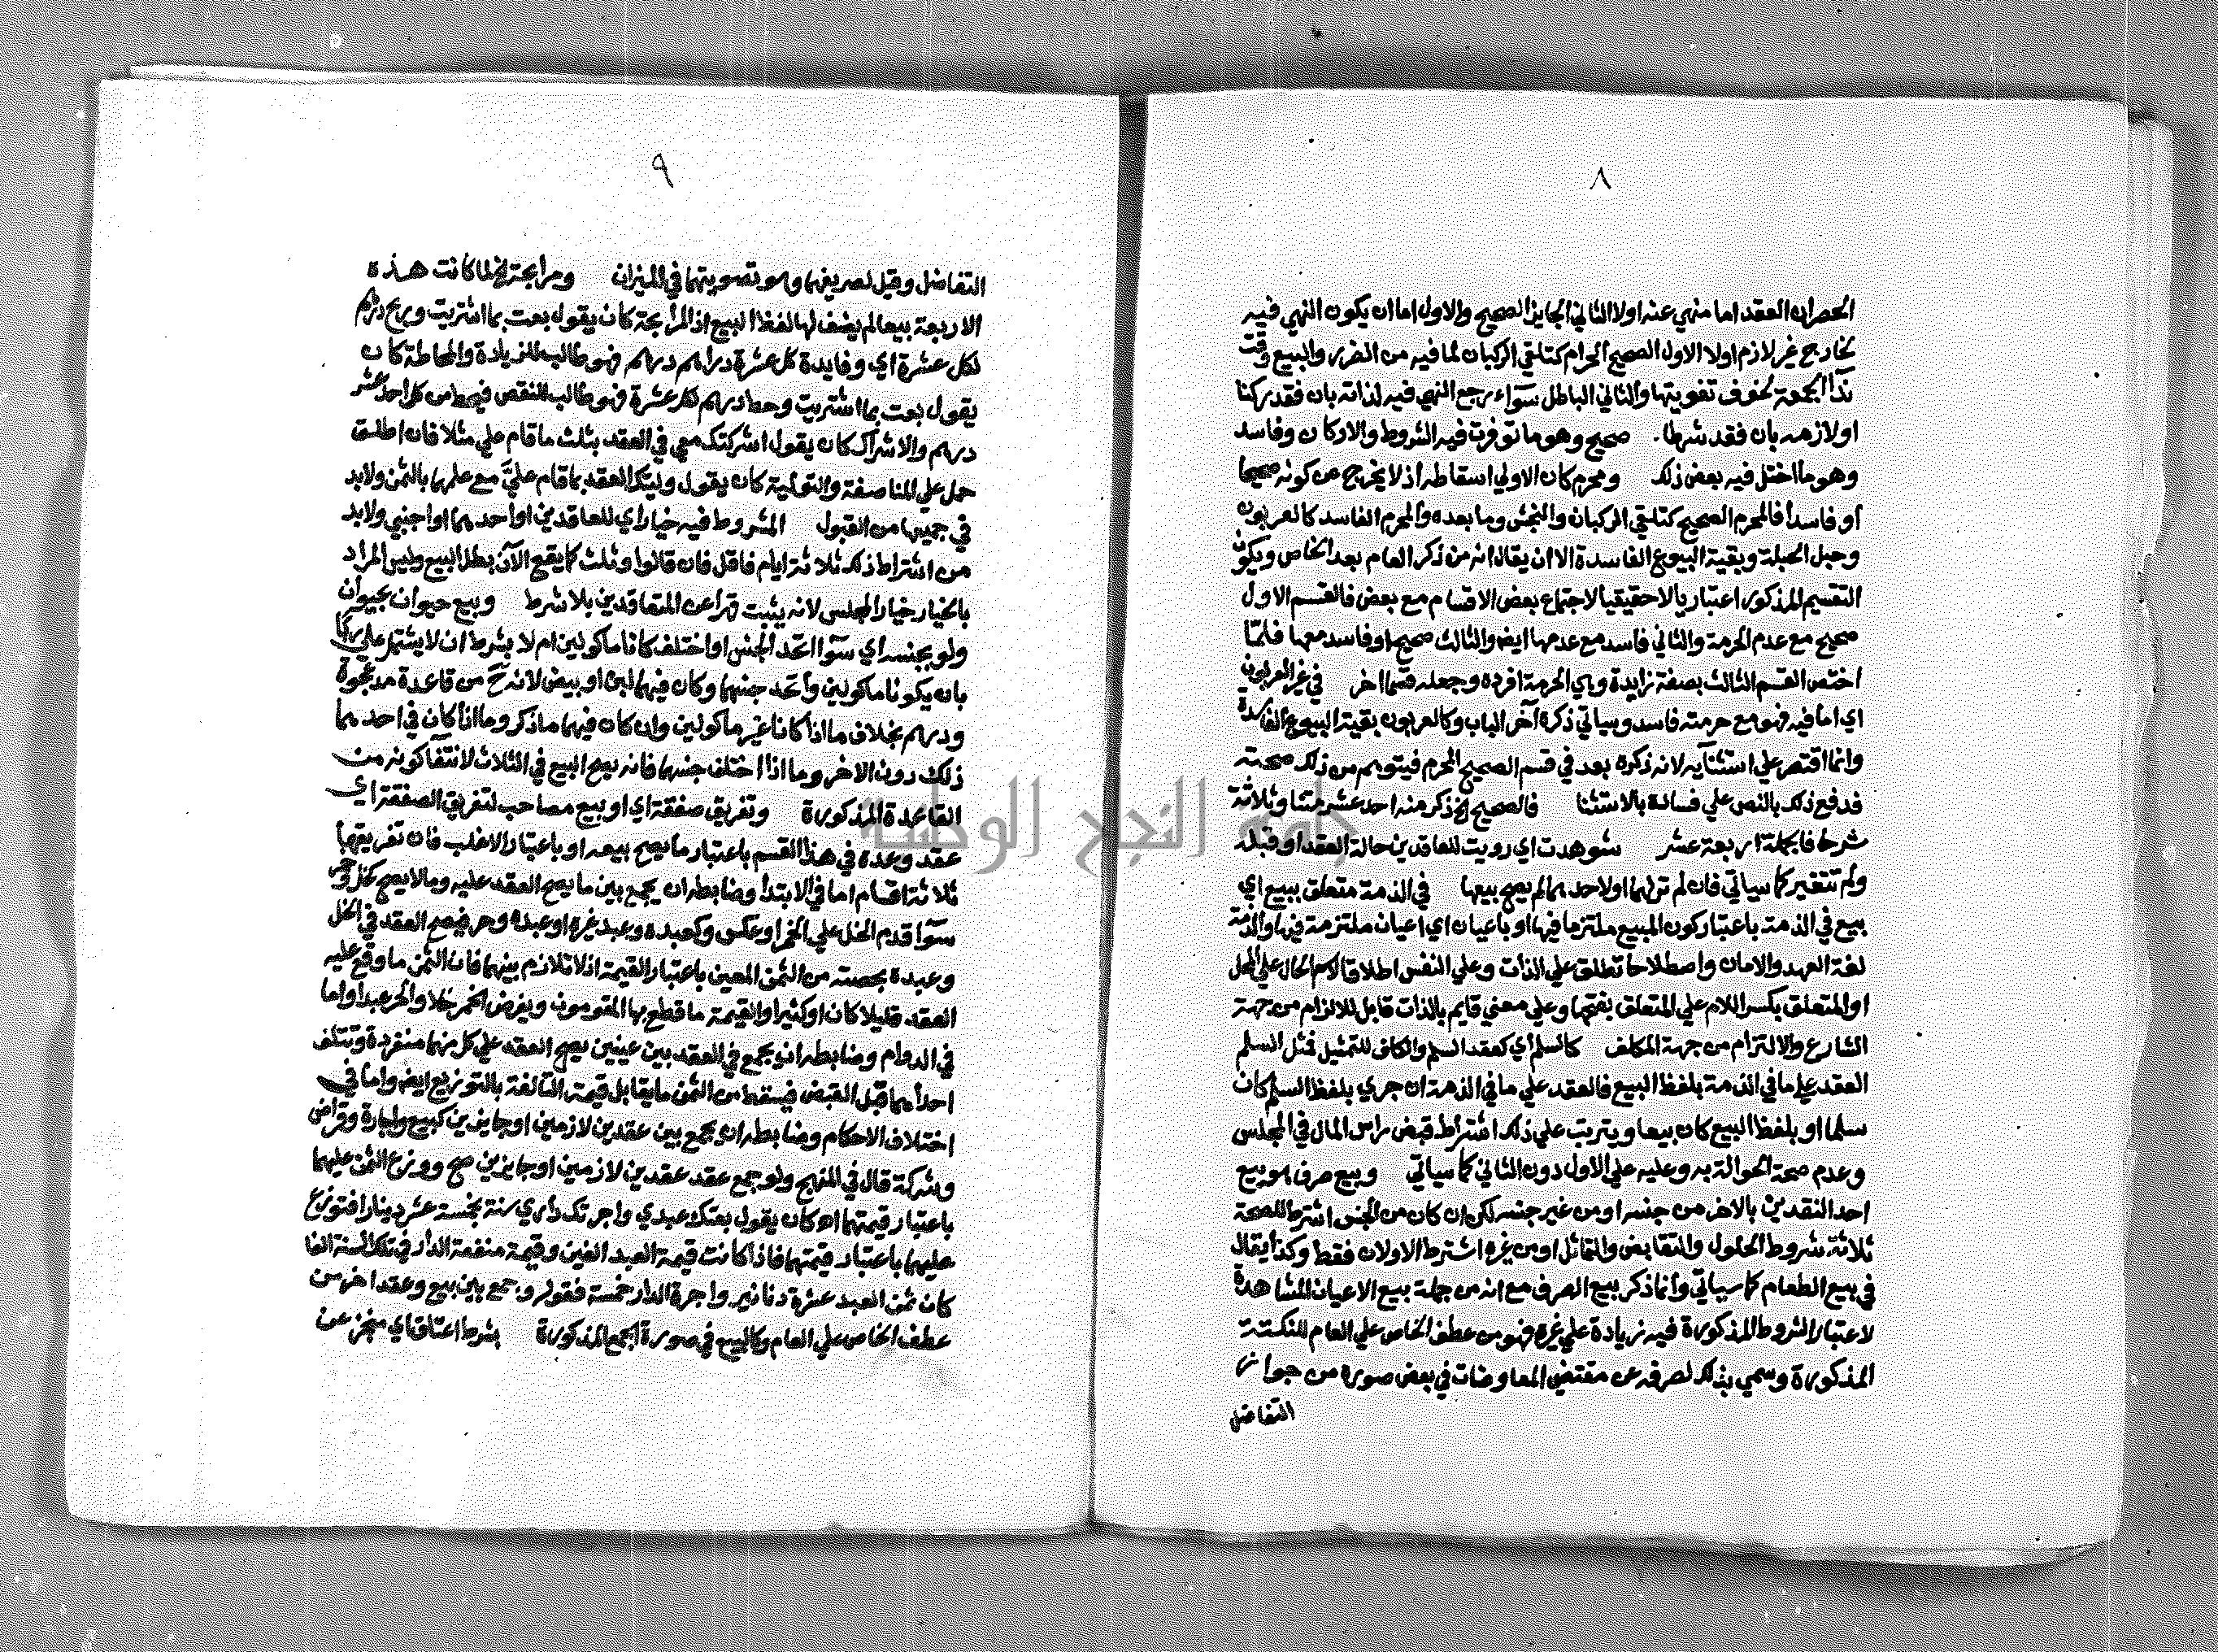 ٨
الحصران العقد اما منهي عنه اولا الثاني الجايز الصحيح والاول اما ان يكون النهي فيه
لخارج غير لازم اولا الاول الصحيح الحرام كتلقي الركبان لما فيه من الضرر والبيع وقت
ندا الجمعة لخوف تفويتها والثاني الباطل سواء رجع النهي فيه لذاته بان فقد ركنا
او لازمه بان فقد شرطا. صحيح وهو ما توفرت فيه الشروط والاركان وفاسد
وهو ما اختل فيه بعض ذلك ومحرم كان الاولي اسقاطه اذ لا يخرج عن كونه صحيحا
او فاسدا فالمحرم الصحيح كتلقي الركبان والنجش وما بعده والمحرم الفاسد كالعربون
وحبل الحبلة وبقية البيوع الفاسدة الا ان يقال انه من ذكر العام بعد الخاص ويكون
التقسيم المذكور اعتباريا لا حقيقيا لاجتماع بعض الاقسام مع بعض فالقسم الاول
صحيح مع عدم الحرمة والثاني فاسد مع عدمها ايضا والثالث صحيح او فاسد معها فلما
اختص القسم الثالث بصفة زايدة وهي الحرمة افرده وجعله قسما اخر في غير العربون
اي اما فيه فهو مع حرمته فاسد وسياتي ذكره آخر الباب وكالعربون بقية البيوع الفاسدة
وانما اقتصر علي استثنآيه لانه ذكره بعد في قسم الصحيح المحرم فيتوهم من ذلك صحته
فدفع ذلك بالنص علي فساده بالاستثنا فالصحيح الخ ذكر منه احد عشر متنا وثلاثة
شرحا فالجملة اربعة عشر شوهدت اي رويت للعاقدين حالة العقد او قبله
ولم تتغير كما سياتي فان لم ترلهما اولاحدهما لم يصح بيعها في الذمة متعلق ببيع اي
بيع في الذمة باعتبار كون المبيع ملتزما فيها او باعيان اي اعيان ملتزمة فيها والذمة
لغة العهد والامان واصطلاحا تطلق علي الذات وعلي النفس اطلاقا لاسم الحال علي المحل
او المتعلق بكسر اللام علي المتعلق بفتحها وعلي معني قايم بالذات قابل للالزام من جهة
الشارع والالتزام من جهة المكلف كالسلم اي كعقد السلم والكاف للتمثيل فمثل السلم
العقد علي ما في الذمة بلفظ البيع فالعقد علي ما في الذمة ان جري بلفظ السلم كان
سلما او بلفظ البيع كان بيعا ويترتب علي ذلك اشتراط قبض راس المال في المجلس
وعدم صحة الحوالة به وعليه علي الاول دون الثاني كما سياتي وبيع صرف هو بيع
احد النقدين بالاخر من جنسه او من غير جنسه لكن ان كان من الجنس اشترط للصحة
ثلاثة شروط الحلول والتقابض والتماثل او من غيره اشترط الاولان فقط وكذا يقال
في بيع الطعام كما سياتي وانما ذكر بيع الصرف مع انه من جملة بيع الاعيان المشاهدة
لاعتبار الشروط المذكورة فيه زيادة علي غيره فهو من عطف الخاص علي العام للنكتة
المذكورة وسمي بذلك لصرفه عن مقتضي المعاوضات في بعض صوره من جواز
التفاضل
٩
التفاضل وقيل لصريفهما وهو تصويتهما في الميزان ومرابحة الخ لما كانت هذه
الاربعة بيعا لم يضف لها لفظ البيع اذ المرابحة كان يقول بعت بما اشتريت وربح درهم
لكل عشرة اي وفايدة كل عشرة دراهم درهم فهو طالب للزيادة والمحاطة كان
يقول بعت بما اشتريت وحط درهم لكل عشرة فهو طالب للنقص فيحط من كل احد عشر
درهم والاشراك كان يقول اشركتك معي في العقد بثلث ما قام علي مثلا فان اطلق
حمل علي المناصفة والتولية كان يقول وليتك العقد بما قام عليَّ مع علمهما بالثمن ولابد
في جميعها من القبول المشروط فيه خيار اي للعاقدين او احدهما او اجنبي ولابد
من اشتراط ذلك ثلاثة ايام فاقل فان قالوا وثلث كما يقع الآن بطل البيع وليس المراد
بالخيار خيار المجلس لانه يثبت قهرا عن المتعاقدين بلا شرط وبيع حيوان بحيوان
ولو بجنسه اي سوآ اتحد الجنس او اختلف كانا ماكولين ام لا بشرط ان لا يشتمل علي ربا
بان يكونا ماكولين واتحد جنسهما وكان فيهما لبن او بيض لانه ح من قاعدة مد عجوة
ودرهم بخلاف ما اذا كانا غير ماكولين وان كان فيهما ما ذكر وما اذا كان في احدهما
ذلك دون الاخر وما اذا اختلف جنسهما فانه يصح البيع في الثلاث لانتفآ كونه من
القاعدة المذكورة وتفريق صفقة اي او بيع مصاحب لتفريق الصفقة اي
عقد وعده في هذا القسم باعتبار ما يصح بيعه او باعتبار الاغلب فان تفريقها
ثلاثة اقسام اما في الابتدأ وضابطه ان يجمع بين ما يصح العقد عليه وما لا يصح كخل وخمر
سوآ قدم الخل علي الخمر او عكس وكعبده وعبد غيره او عبده وحر فيصح العقد في الخل
وعبده بحصته من الثمن المعين باعتبار القيمة اذ لا تلازم بينهما فان الثمن ما وقع عليه
العقد قليلا كان او كثيرا والقيمة ما قطع بها المقومون ويفرض الخمر خلا والحر عبدا واما
في الدوام وضابطه ان يجمع في العقد بين عينين يصح العقد علي كل منهما منفردة وتتلف
احدأهما قبل القبض فيسقط من الثمن ما يقابل قيمة التالفة بالتوزيع ايضا واما في
اختلاف الاحكام وضابطه ان يجمع بين عقدين لازمين او جايزين كبيع واجارة وقراض
وشركة قال في المنهج ولو جمع عقد عقدين لازمين او جايزين صح ووزع الثمن عليهما
باعتبار قيمتهما اه كان يقول بعتك عبدي واجرتك داري سنة بخمسة عشر دينارا فتوزع
عليهما باعتبار قيمتهما فاذا كانت قيمة العبد الفين وقيمة منفعة الدار في تلك السنة الفا
كان ثمن العبد عشرة دنانير واجرة الدار خمسة فقوله وجمع بين بيع وعقد اخر من
عطف الخاص علي العام وكالبيع في صورة الجمع المذكورة بشرط اعتاق اي منجز عن
جامعة النجاح الوطنية